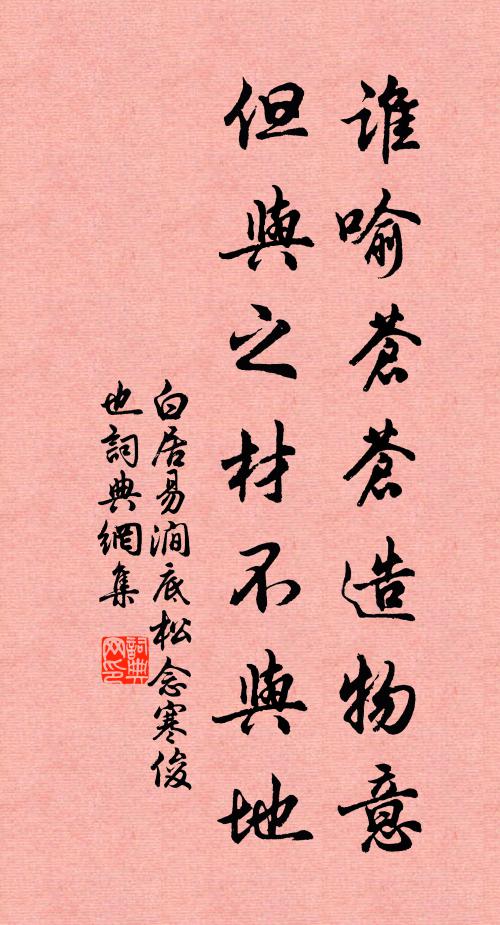 誰喻蒼蒼造物意
但與之材不與地
白居易澗底松念寒俊
也詞典網集
詞典网印